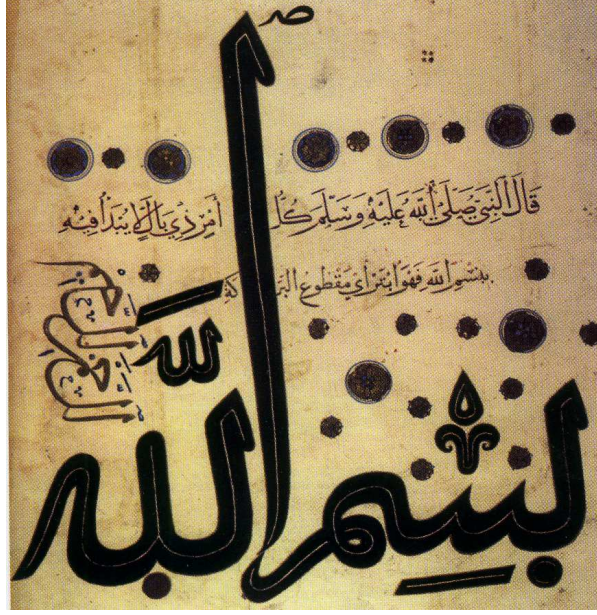 قَالَ النَّبِيُّ صَلَّى اللَّهُ عَلَيْهِ وَسَلَّمَ كُلُّ أَمْرٍ ذِي بَالٍ لَا يُبْدَأُ فِيْهِ
بِبِسْمِ اللَّهِ فَهُوَ أَبْتَرُ أَيْ مَقْطُوعُ البَرَكَةِ
بِسْمِ اللَّه
الرَّحْمٰنِ الرَّحِيمِ